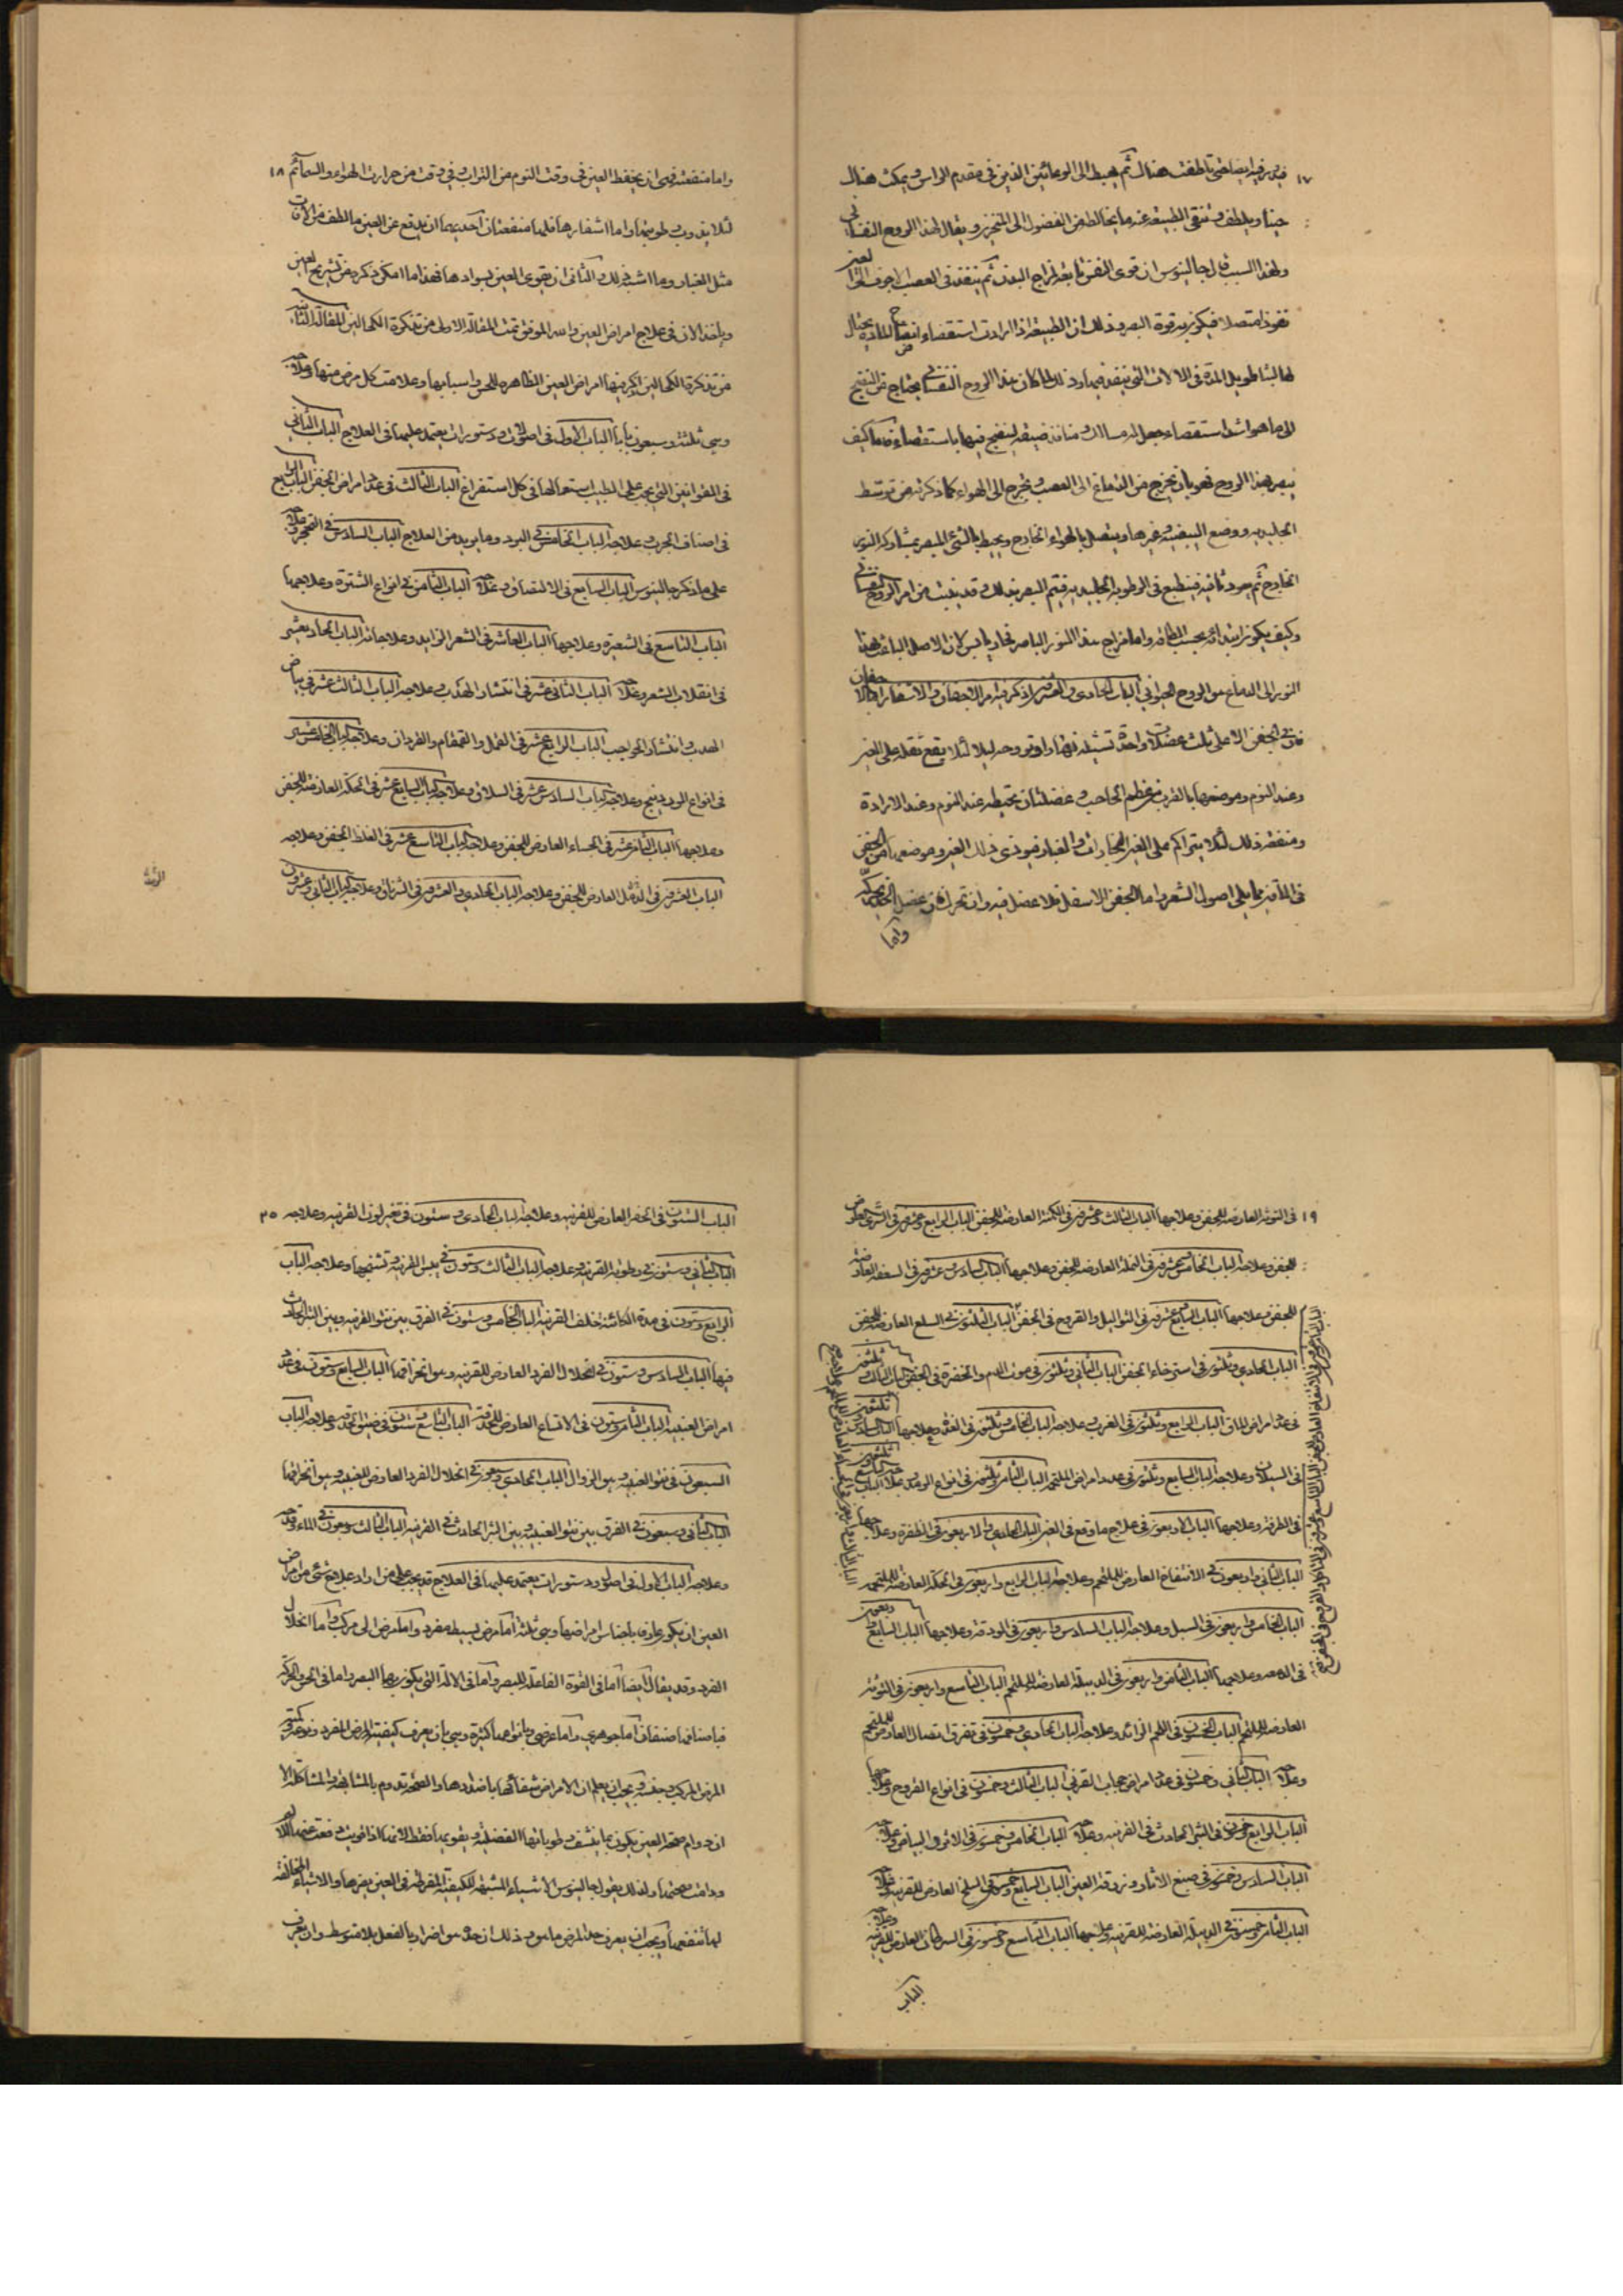 ١٧
فيه ثم يهبط الى الوعائين الذين فى مقدم الراس ويمكث هناك
حينا ويلطف وتنقى الطبيعة عنه ما يخالطه من الفضول الى المنخرين ويقال لهذا الروح النفسانى
ولهذا السبب قال جالينوس ان قوى النفس تابعة لمزاج البدن ثم ينفذ فى العصب الاجوف الى العين
نفوذا متصلا فيكون به قوة البصر وذلك ان الطبيعة اذا ارادت استقصاء انضاج المادة
لها لبثا طويل المدة فى الالات التى تنفذ فيها وذلك لما كان هذا الروح النفسانى يحتاج من النضج
الى ما هو اشد استقصاء جعل له مسالك ومنافذ ضيقة لينضج فيها باستقصاء فاما كيف
يبصر بهذا الروح فهو بان يخرج من الدماغ الى العصب ويخرج الى الهواء كما ذكرنا من توسط
الجليدية ووضع البيضية وغيرها ويتصل بالهواء الخارج ويحيط بالشئ المبصر بمشاركة النور
الخارج ثم يعود ثانية فينطبع فى الرطوبة الجليدية فيتم البصر بذلك وقد بينت من امر الروح النفسانى
وكيف يكون ابتدائه بحسب الطاقة واما مزاج هذا النور الباصر فحار يابس لان الاصل الباعث لهذا
النور الى الدماغ هو الروح الحيوانى الباب الحادى والعشرون اذكر فيه امر الاجفان والاشفار
فى الجفن الاعلى ثلث عضلات واحدة تشيله نهارا وتروحه ليلا لئلا يقع ثقله على العين
وعند النوم وموضعها بالقرب من عظم الحاجب وعضلتان تحيطه عند النوم وعند الارادة
ومنفعة ذلك لئلا يتراكم على العين البخارات والغبار فيوذى ذلك العين وموضعهما من الجفن
فى الماقين مما يلى اصول الشعر واما الجفن الاسفل فلا عضل فيه وان تحرك فمن عضل
واما
١٨
واما منفعته فهى ان يحفظ العين فى وقت النوم من التراب وفى وقت من حرارت الهواء والسمائم
لئلا يذوب رطوبتها واما اشفارها فلها منفعتان احديهما ان يدفع عن العين ما لطف من الافات
مثل الغبار وما اشبه ذلك والثانى ان يقوى العين بسوادها فهذا ما امكن ذكره من تشريح العين
وياخذ الان فى علاج امراض العين والله الموفق تمت المقالة الاولى من تذكرة الكحالين المقالة الثانية
من تذكرة الكحالين اذكر فيها امراض العين الظاهرة للحس واسبابها وعلامت كل مرض منها وعلاجه
وهى ثلثة وسبعون بابا الباب الاول فى اصول ودستورات يعتمد عليها فى العلاج الباب الثانى
فى القوانين التى يجب على الطبيب استعمالها فى كل استفراغ الباب الثالث فى عدد امراض الجفن الباب الرابع
فى اصناف الجرب وعلاجه الباب الخامس فى البرد وما يريد من العلاج الباب السادس فى التحجر وعلاجه
على ما ذكر جالينوس الباب السابع فى الالتصاق وعلاجه الباب الثامن فى انواع الشترة وعلاجها
الباب التاسع فى الشعيرة وعلاجها الباب العاشر فى الشعر الزايد وعلاجاته الباب الحاديعشر
فى انقلاب الشعر وعلاجه الباب الثانى عشر فى انتشار الهدب وعلاجه الباب الثالث عشر فى بياض
الهدب وانتشار الحواجب الباب الرابع عشر فى القمل والقمقام والقردان وعلاجه الباب الخامس عشر
فى انواع الوردينج وعلاجه الباب السادس عشر فى السلاق وعلاجه الباب السابع عشر فى الحكة العارضة للجفن
وعلاجها الباب الثامن عشر فى الجساء العارض للجفن وعلاجه الباب التاسع عشر فى الغلظ الجفن وعلاجه
الباب العشرون فى الدمل العارض للجفن وعلاجه الباب الحادى والعشرون فى الشرناق وعلاجه الباب الثانى وعشرون
١٩
فى التوثة العارضة للجفن وعلاجها الباب الثالث وعشرون فى الكمنة العارضة للجفن الباب الرابع وعشرون فى الشرى العارض
للجفن وعلاجه الباب الخامس وعشرون فى النملة العارضة للجفن وعلاجها الباب السادس وعشرون فى السعفة العارضة
للجفن وعلاجها الباب السابع وعشرون فى الثواليل والقروح فى الجفن الباب الثلثون فى السلع العارضة للجفن
الباب الحادى وثلثون فى استرخاء الجفن الباب الثانى وثلثون فى موت الدم والخضرة فى الجفن الباب الثالث وثلثون
فى عدد امراض الماق الباب الرابع وثلثون فى الغرب وعلاجه الباب الخامس وثلثون فى الغدة وعلاجها الباب السادس وثلثون
فى السيلان وعلاجه الباب السابع وثلثون فى عدد امراض الملتحم الباب الثامن وثلثون فى انواع الرمد وعلاجه الباب التاسع وثلثون
فى الطرفة وعلاجها الباب الاربعون فى علاج ما وقع فى العين الباب الحادى والاربعون فى الظفرة وعلاجها
الباب الثانى واربعون فى الانتفاخ العارض للملتحم وعلاجه الباب الرابع واربعون فى الحكة العارضة للملتحم
الباب الخامس واربعون فى السبل وعلاجه الباب السادس واربعون فى الودقة وعلاجها الباب السابع واربعون
فى الدمعة وعلاجها الباب الثامن واربعون فى الدبيلة العارضة للملتحم الباب التاسع واربعون فى التوثة
العارضة للملتحم الباب الخمسون فى اللحم الزائد وعلاجه الباب الحادى وخمسون فى تفرق اتصال العارض للملتحم
وعلاجه الباب الثانى وخمسون فى عدد امراض حجاب القرنى الباب الثالث وخمسون فى انواع القروح وعلاجها
الباب الرابع وخمسون فى البثر الحادث فى القرنيه وعلاجه الباب الخامس وخمسون فى الاثر والبياض وعلاجه
الباب السادس وخمسون فى صبغ الاثار وزرقة العين الباب السابع وخمسون فى السلخ العارض للقرنيه وعلاجه
الباب الثامن وخمسون فى الدبيلة العارضة للقرنيه وعلاجها الباب التاسع وخمسون فى السرطان العارض للقرنيه وعلاجه
الباب
٢٥
الباب الستون فى الحفر العارض للقرنيه وعلاجه الباب الحادى وستون فى تغير لون القرنيه وعلاجه
الباب الثانى وستون فى رطوبة القرنيه وعلاجه الباب الثالث وستون فى يبس القرنيه وتشنجها وعلاجه الباب
الرابع وستون فى مدة الكائنة خلف القرنيه الباب الخامس وستون فى الفرق بين نتو القرنيه وبين البثر الحادث
فيها الباب السادس وستون فى انحلال الفرد العارض للقرنيه وهو انخراقها الباب السابع وستون فى عدد
امراض العنبيه الباب الثامن وستون فى الاتساع العارض للحدقه الباب التاسع وستون فى ضيق الحدقه وعلاجه الباب
السبعون فى نتو العنبيه وهو الزوال الباب الحادى وسبعون فى انحلال الفرد العارض للعنبيه وهو انخراقها
الباب الثانى وسبعون فى الفرق بين نتو العنبيه وبين البثر الحادث فى القرنيه الباب الثالث وسبعون فى الماء وقدحه
وعلاجه الباب الاول فى اصول ودستورات يعتمد عليها فى العلاج قد يجب على من اراد علاج شئ من امراض
العين ان يكون عارفا باجناس امراضها وهى ثلثة اما مرض بسيط مفرد واما مرض الى مركب واما انحلال
الفرد وقد يقال ايضا اما فى القوة الفاعلة للبصر واما فى الالة التى يكون بها البصر واما فى الحس والحركة
فباصنافها صنفان اما جوهرى واما عرضى وبانواعها كثيرة وهى بان يعرف كيفية المرض المفرد ونوعه وكمية
المرض المركب وجنسه ويجب ان يعلم ان الامراض شفائها باضدادها والصحة تدوم بالمشابهة والمشاكلة الا
ان دوام صحة العين يكون بما ينشف رطوباتها الفضلية ويقويها فقط لانها اذا قويت دفعت عنها
ودامت صحتها ولذلك يقول جالينوس الاشياء المشبهة للكيفية المفرطة فى العين يضرها والاشياء المخالفة
لها تنفعها ويجب ان يعرف حد المرض ما هو وذلك ان حده هو اضرار بالفعل بلا متوسط وان يعرف